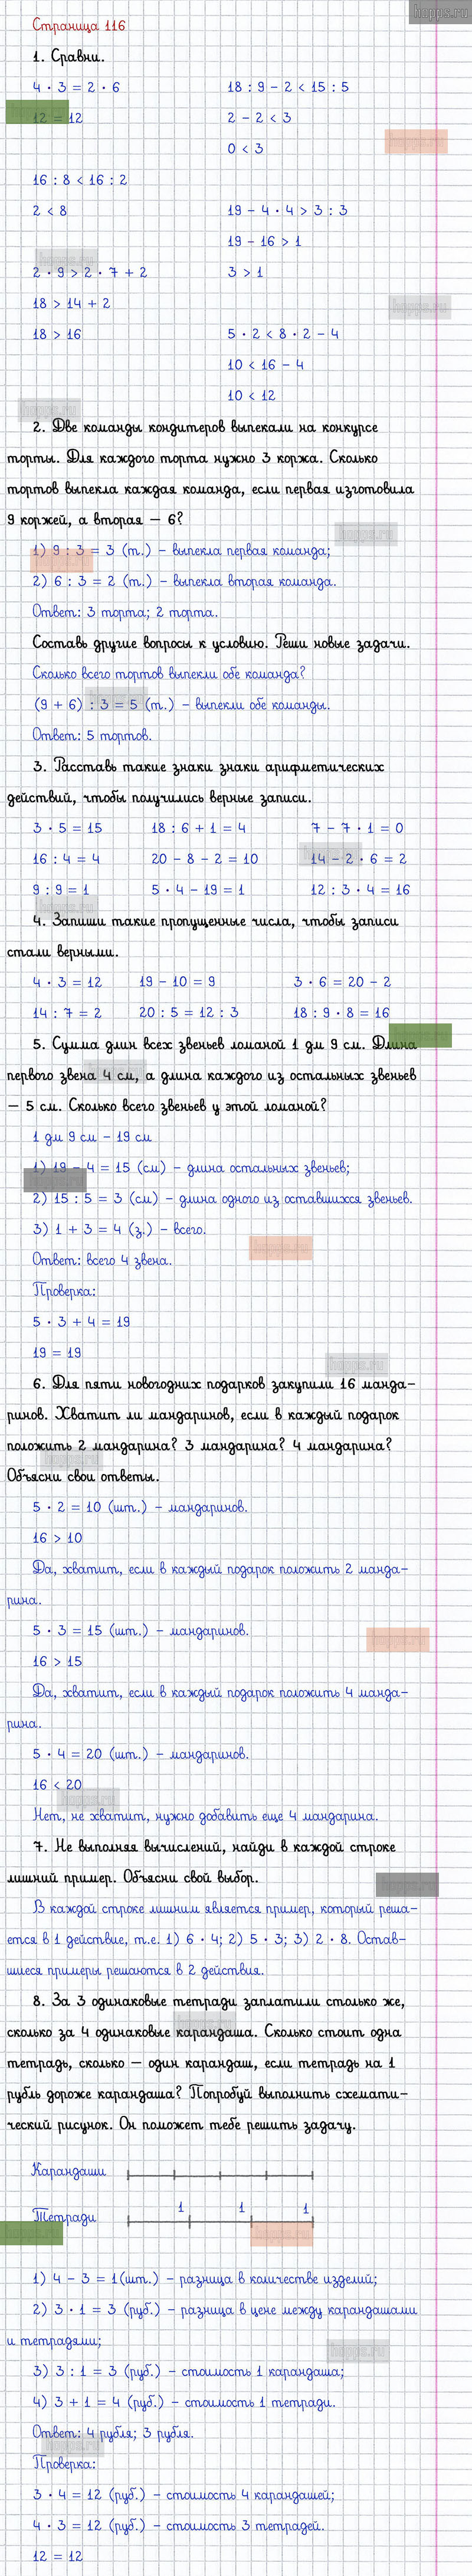 hopps.ru
Страница 116
1. Сравни.
4 · 3 = 2 · 6
12 = 12
16 : 8 < 16 : 2
2 < 8
2 · 9 > 2 · 7 + 2
18 > 14 + 2
18 > 16
18 : 9 – 2 < 15 : 5
2 – 2 < 3
0 < 3
19 – 4 · 4 > 3 : 3
19 – 16 > 1
3 > 1
5 · 2 < 8 · 2 – 4
10 < 16 – 4
10 < 12
2. Две команды кондитеров выпекали на конкурсе
торты. Для каждого торта нужно 3 коржа. Сколько
тортов выпекла каждая команда, если первая изготовила
9 коржей, а вторая – 6?
1) 9 : 3 = 3 (т.) – выпекла первая команда;
2) 6 : 3 = 2 (т.) – выпекла вторая команда.
Ответ: 3 торта; 2 торта.
Составь другие вопросы к условию. Реши новые задачи.
Сколько всего тортов выпекли обе команда?
(9 + 6) : 3 = 5 (т.) – выпекли обе команды.
Ответ: 5 тортов.
3. Расставь такие знаки знаки арифметических
действий, чтобы получились верные записи.
3 · 5 = 15 18 : 6 + 1 = 4 7 – 7 · 1 = 0
16 : 4 = 4 20 – 8 – 2 = 10 14 – 2 · 6 = 2
9 : 9 = 1 5 · 4 – 19 = 1 12 : 3 · 4 = 16
4. Запиши такие пропущенные числа, чтобы записи
стали верными.
4 · 3 = 12 19 – 10 = 9 3 · 6 = 20 – 2
14 : 7 = 2 20 : 5 = 12 : 3 18 : 9 · 8 = 16
5. Сумма длин всех звеньев ломаной 1 дм 9 см. Длина
первого звена 4 см, а длина каждого из остальных звеньев
– 5 см. Сколько всего звеньев у этой ломаной?
1 дм 9 см – 19 см
1) 19 – 4 = 15 (см) – длина остальных звеньев;
2) 15 : 5 = 3 (см) – длина одного из оставшихся звеньев.
3) 1 + 3 = 4 (з.) – всего.
Ответ: всего 4 звена.
Проверка:
5 · 3 + 4 = 19
19 = 19
6. Для пяти новогодних подарков закупили 16 манда–
ринов. Хватит ли мандаринов, если в каждый подарок
положить 2 мандарина? 3 мандарина? 4 мандарина?
Объясни свои ответы.
5 · 2 = 10 (шт.) – мандаринов.
16 > 10
Да, хватит, если в каждый подарок положить 2 манда–
рина.
5 · 3 = 15 (шт.) – мандаринов.
16 > 15
Да, хватит, если в каждый подарок положить 4 манда–
рина.
5 · 4 = 20 (шт.) – мандаринов.
16 < 20
Нет, не хватит, нужно добавить еще 4 мандарина.
7. Не выполняя вычислений, найди в каждой строке
лишний пример. Объясни свой выбор.
В каждой строке лишним является пример, который реша–
ется в 1 действие, т.е. 1) 6 · 4; 2) 5 · 3; 3) 2 · 8. Остав–
шиеся примеры решаются в 2 действия.
8. За 3 одинаковые тетради заплатили столько же,
сколько за 4 одинаковые карандаша. Сколько стоит одна
тетрадь, сколько – один карандаш, если тетрадь на 1
рубль дороже карандаша? Попробуй выполнить схемати–
ческий рисунок. Он поможет тебе решить задачу.
Карандаши
Тетради 1 1 1
1) 4 – 3 = 1(шт.) – разница в количестве изделий;
2) 3 · 1 = 3 (руб.) – разница в цене между карандашами
и тетрадями;
3) 3 : 1 = 3 (руб.) – стоимость 1 карандаша;
4) 3 + 1 = 4 (руб.) – стоимость 1 тетради.
Ответ: 4 рубля; 3 рубля.
Проверка:
3 · 4 = 12 (руб.) – стоимость 4 карандашей;
4 · 3 = 12 (руб.) – стоимость 3 тетрадей.
12 = 12